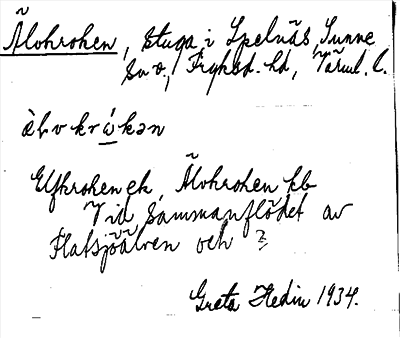 Älvkroken, stuga i Spelnäs, Sunne
sn o., Fryksd. hd, Värml. l.
àlvkrẁ́kən
Elfkroken ek, Älvkroken kb
Vid sammanflödet av
Flatsjöälven och ?
Greta Hedin 1934.